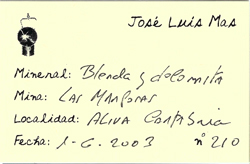 José Luis Mas
Mineral: Blenda y dolomita
Mina: Las Manforas
Localidad: Aliva Cantabria
Fecha: 1-6-2003 nº 210